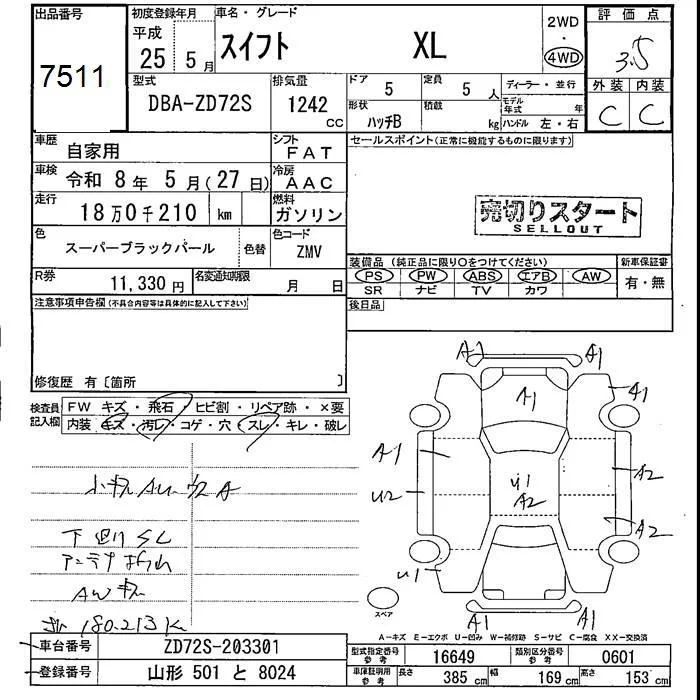 出品番号 初度登録年月 車名・グレード 2WD 評価点
7511 平成 25年 5月 スイフト XL ・ 4WD 3.5
型式 排気量 ドア 定員 ディーラー・並行 外装 内装
DBA-ZD72S 1242 cc 5 5人 モデル年式 年 C C
形状 ハッチB 積載 kg ハンドル 左・右
車歴 自家用 シフト FAT セールスポイント(正常に機能するものに限ります)
車検 令和 8年 5月(27日) 冷房 AAC
走行 18万0千210 km 燃料 ガソリン 売切りスタート
SELLOUT
色 スーパーブラックパール 色替 色コード ZMV
装備品 (純正品に限り○をつけてください) 新車保証書
R券 11,330円 名変通知期限 月 日 PS PW ABS エアB AW 有・無
SR ナビ TV カワ
注意事項申告欄(不具合内容等は具体的に記入して下さい) 後日品
修復歴 有〔箇所 〕
検査員記入欄 FW キズ・飛石・ヒビ割・リペア跡・×要
内装 キズ・汚レ・コゲ・穴・スレ・キレ・破レ
A1 A1
A1 A1
A1 A2
U2 U1 A2 A2
U1
下廻り SC
AW キズ
180.213K
スペア
A1 A1
A-キズ E-エクボ U-凹み W-補修跡 S-サビ C-腐食 XX-交換済
車台番号 ZD72S-203301 型式指定番号 参考 16649 類別区分番号 参考 0601
登録番号 山形 501 と 8024 車庫証明用 参考 長さ 385 cm 幅 169 cm 高さ 153 cm